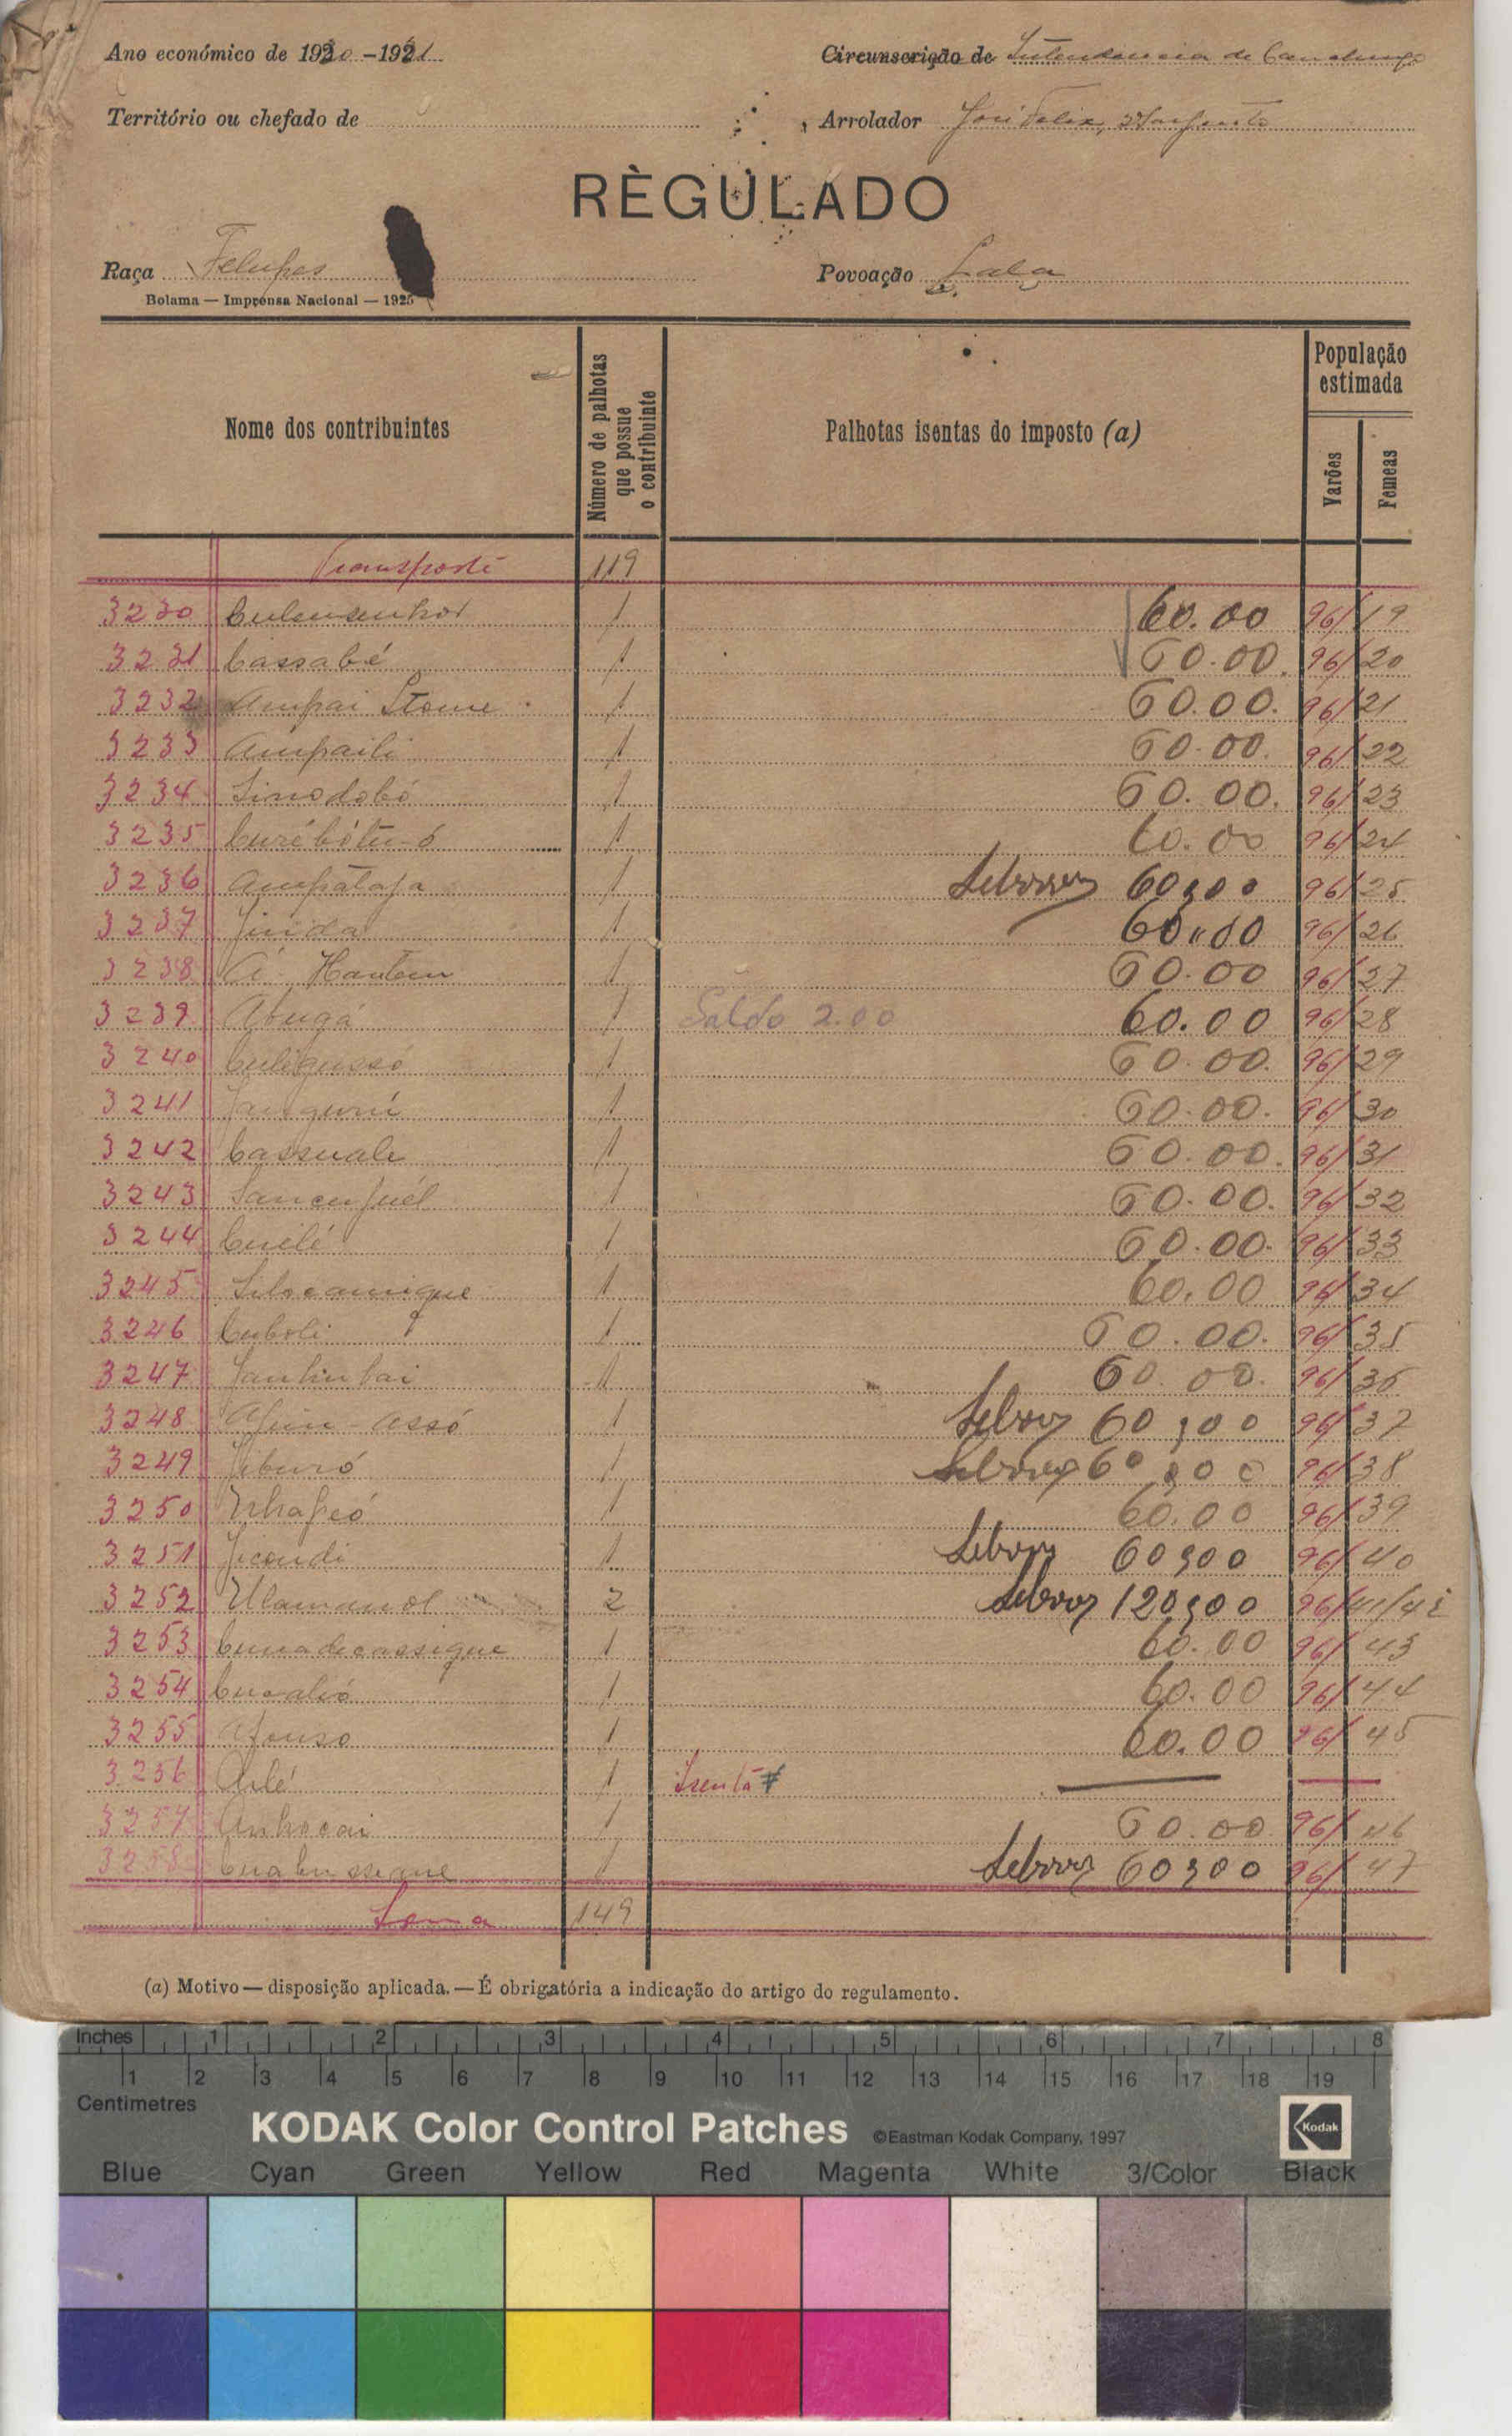 Ano económico de 1930-1931
Circunscrição de Intendencia de Canchungo
Território ou chefado de
Arrolador José Felix, 2º Sargento
RÈGULADO
Raça Felupes
Povoação Lala
Bolama — Imprensa Nacional — 1925
Nome dos contribuintes
Número de palhotas que possue o contribuinte
Palhotas isentas do imposto (a)
População estimada
Varões
Femeas
Transporte 119
3230 1 60.00 96/ 19
3231 Cassabé 1 60.00. 96/ 20
3232 Ampai Stome 1 60.00. 96/ 21
3233 Ampaili 1 60.00. 96/ 22
3234 Sinodobó 1 60.00. 96/ 23
3235 1 60.00 96/ 24
3236 1 60,00 96/ 25
3237 1 60,00 96/ 26
3238 A. Hantem 1 60.00 96/ 27
3239 1 Saldo 2.00 60.00 96/ 28
3240 1 60.00. 96/ 29
3241 1 60.00. 96/ 30
3242 Cassuale 1 60.00. 96/ 31
3243 1 60.00. 96/ 32
3244 Cuilé 1 60.00. 96/ 33
3245 Silocamique 1 60.00 96/ 34
3246 Cuboli 1 60.00. 96/ 35
3247 1 60.00. 96/ 36
3248 1 60,00 96/ 37
3249 1 60,00 96/ 38
3250 1 60.00 96/ 39
3251 Jicondi 1 60,00 96/ 40
3252 Ulamanol 2 120,00 96/ 41/42
3253 Cunadecassique 1 60.00 96/ 43
3254 Cucalió 1 60.00 96/ 44
3255 Afonso 1 60.00 96/ 45
3256 1 Isenta
3257 Anhocai 1 60.00 96/ 46
3258 1 60,00 96/ 47
Soma 149
(a) Motivo — disposição aplicada. — É obrigatória a indicação do artigo do regulamento.
Inches 1 2 3 4 5 6 7 8
1 2 3 4 5 6 7 8 9 10 11 12 13 14 15 16 17 18 19
Centimetres
KODAK Color Control Patches ©Eastman Kodak Company, 1997 Kodak
Blue Cyan Green Yellow Red Magenta White 3/Color Black